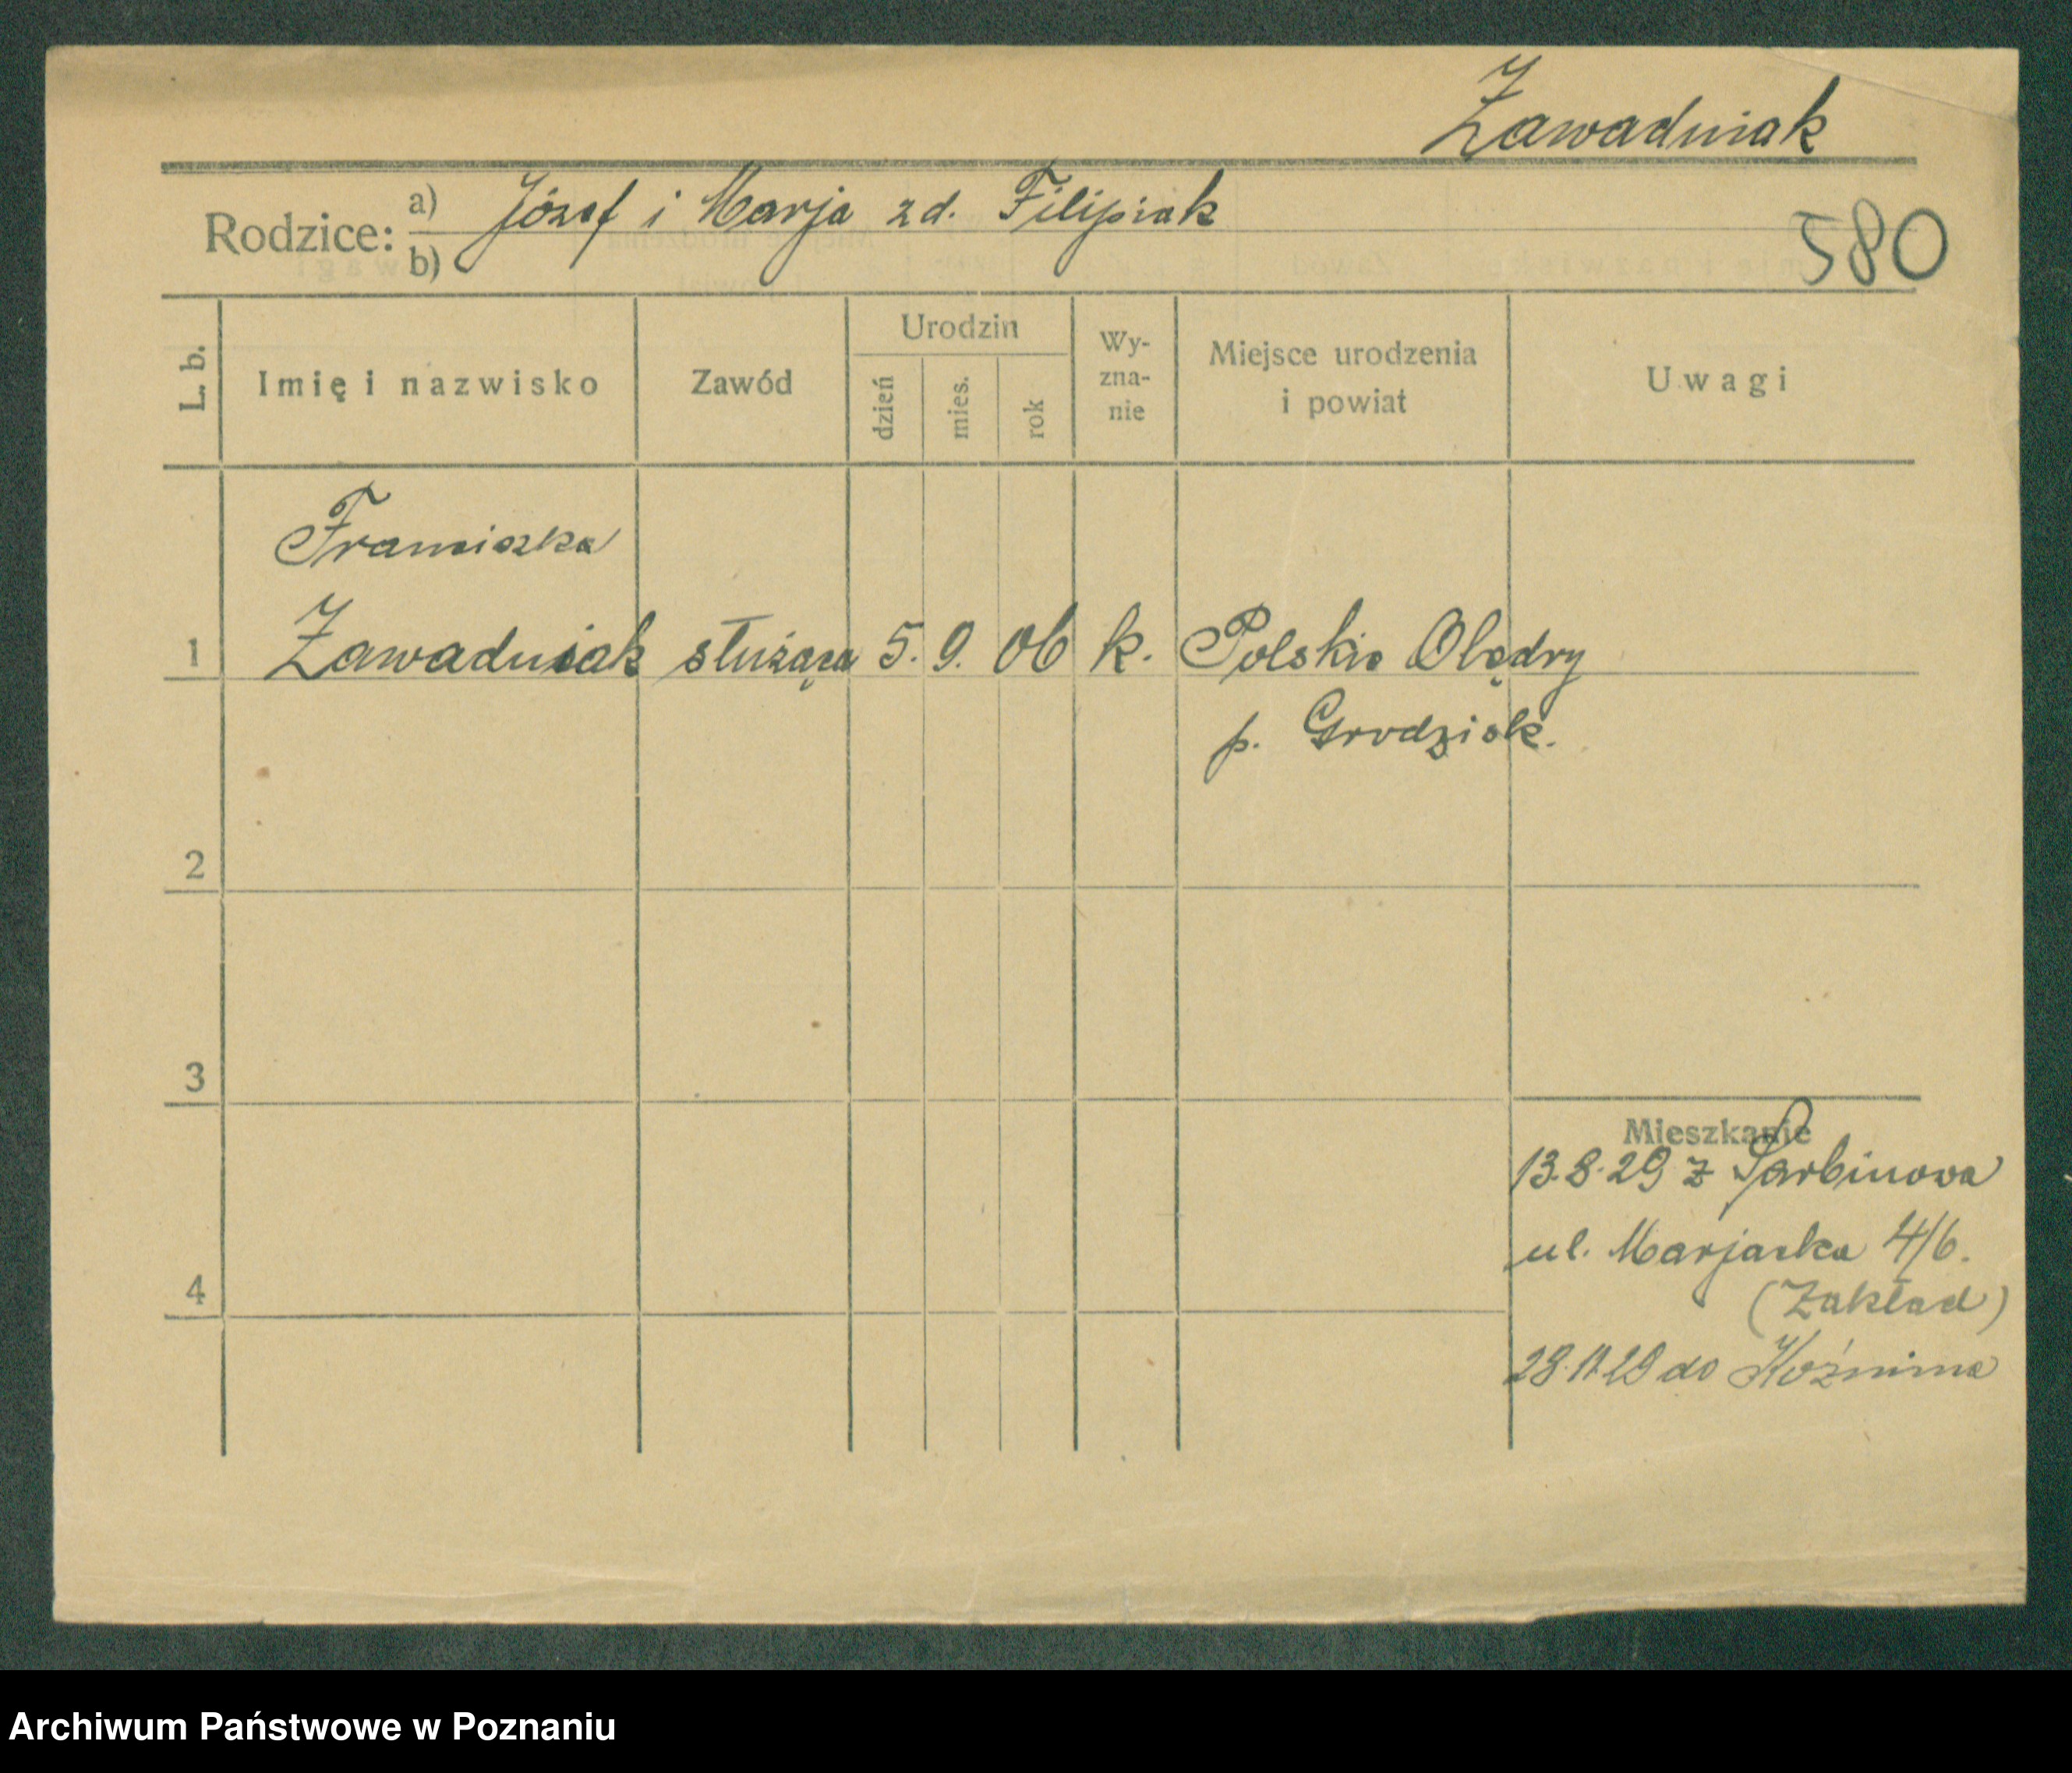 Zawadniak
Rodzice: a) Józef i Marja z d. Filipiak
b)
580
L. b.
Imię i nazwisko
Zawód
Urodzin
dzień
mies.
rok
Wy-
zna-
nie
Miejsce urodzenia
i powiat
Uwagi
Franciszka
1 Zawadniak służąca 5. 9. 06 k. Polskie Olędry
p. Grodzisk.
2
3
Mieszkanie
13.8.29 z Sarbinowa
ul. Marjacka 4/6.
4
(Zakład)
28.11.29 do Koźmina
Archiwum Państwowe w Poznaniu